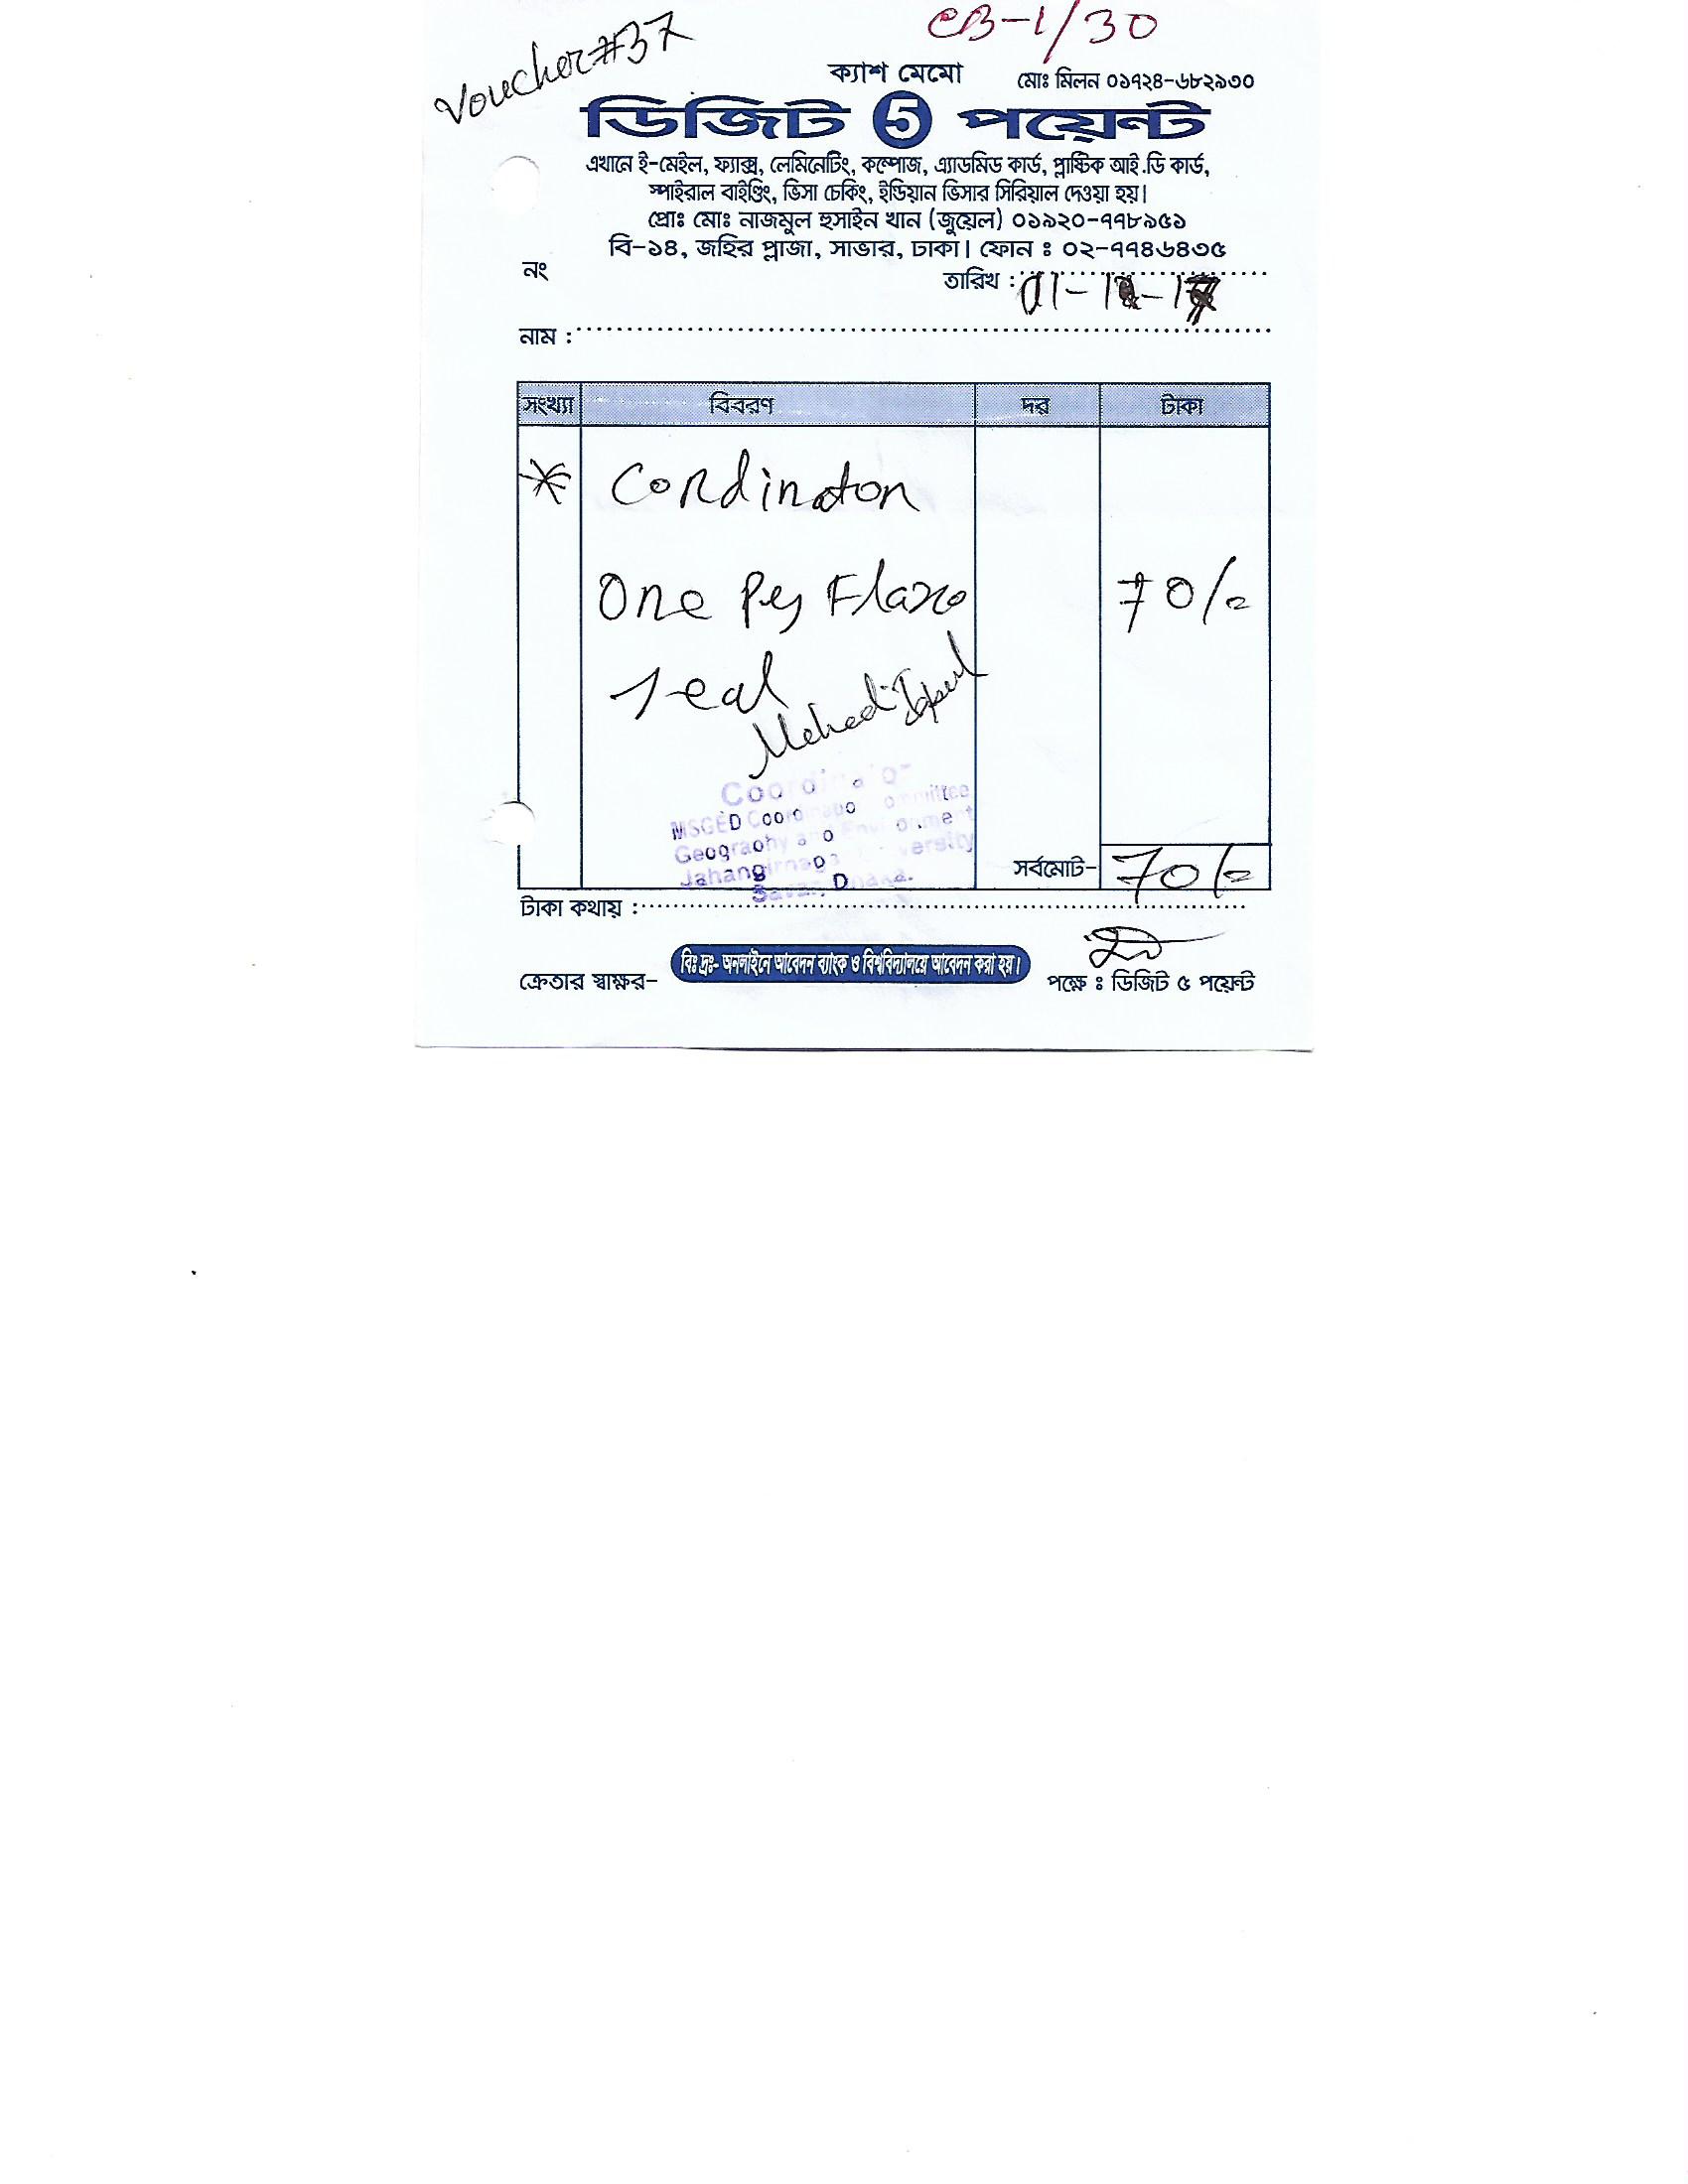 Voucher#37
CB-1/30
ক্যাশ মেমো
মোঃ মিলন ০১৭২৪-৬৮২৯৩০
ডিজিট 5 পয়েন্ট
এখানে ই-মেইল, ফ্যাক্স, লেমিনেটিং, কম্পোজ, এ্যাডমিড কার্ড, প্লাষ্টিক আই.ডি কার্ড,
স্পাইরাল বাইণ্ডিং, ভিসা চেকিং, ইন্ডিয়ান ভিসার সিরিয়াল দেওয়া হয়।
প্রোঃ মোঃ নাজমুল হুসাইন খান (জুয়েল) ০১৯২০-৭৭৮৯৫১
বি-১৪, জহির প্লাজা, সাভার, ঢাকা। ফোন : ০২-৭৭৪৬৪৩৫
নং
তারিখ : 01-
নাম :
সংখ্যা বিবরণ দর টাকা
* Cordinaton
One Pes 70/=
Seal
Mehedi Iqbal
Coordinator
MSGED Coordination Committee
Geography and Environment
Jahangirnagar University
Savar, Dhaka.
সর্বমোট- 70/=
টাকা কথায় :
ক্রেতার স্বাক্ষর-
বিঃ দ্রঃ- অনলাইনে আবেদন ব্যাংক ও বিশ্ববিদ্যালয়ে আবেদন করা হয়।
পক্ষে : ডিজিট ৫ পয়েন্ট